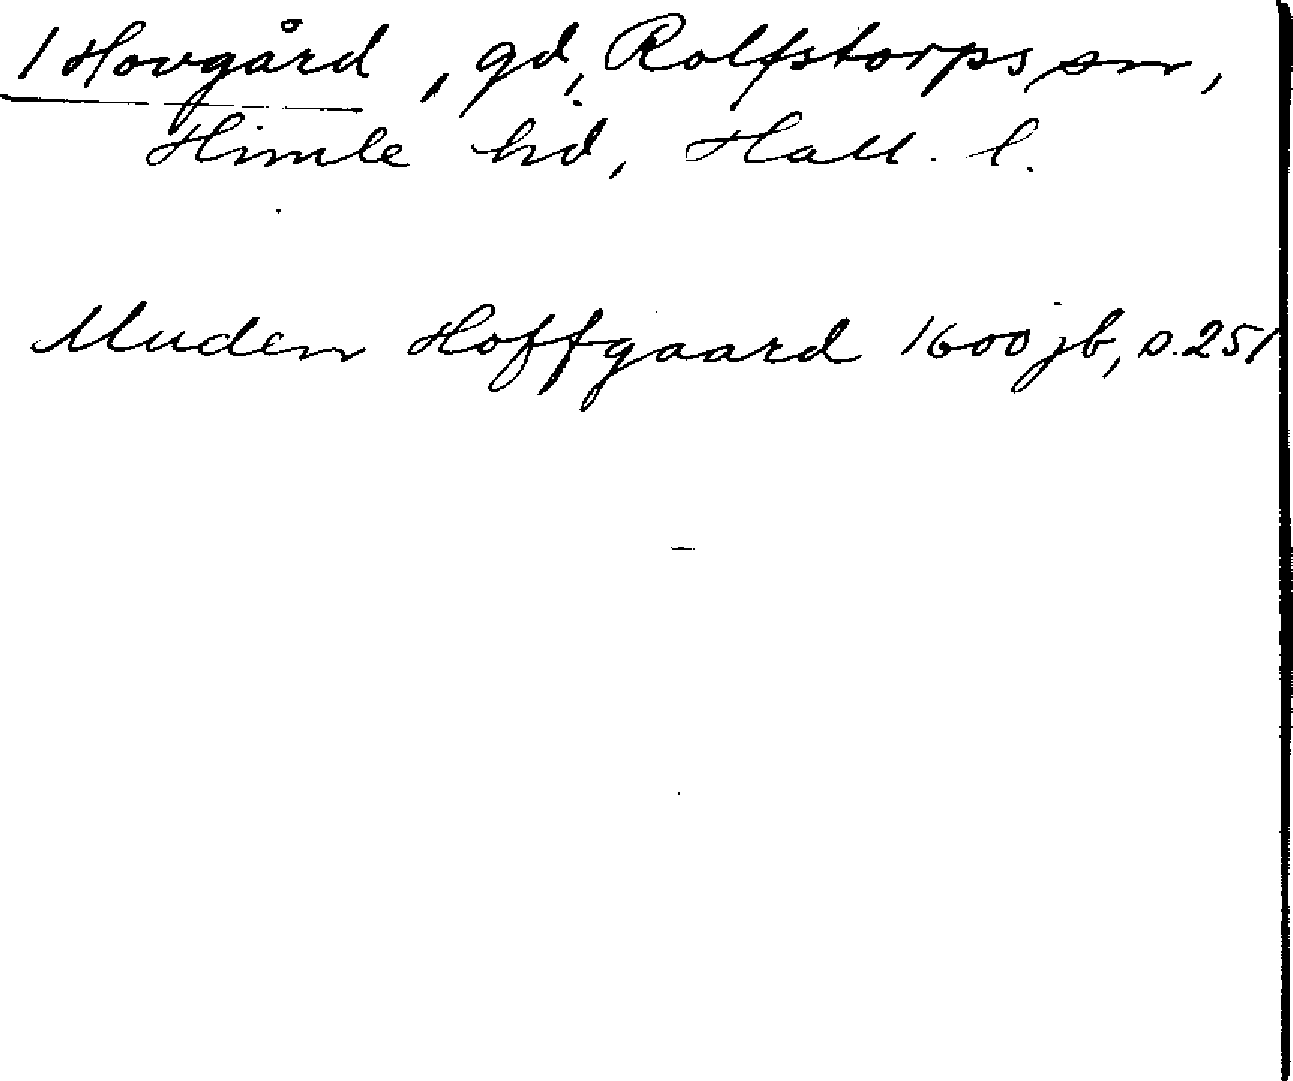 /Hovgård, gd, Rolfstorps sn,
Himle hd, Hall. l.
Muden Hoffgaard 1600 jb, s. 251